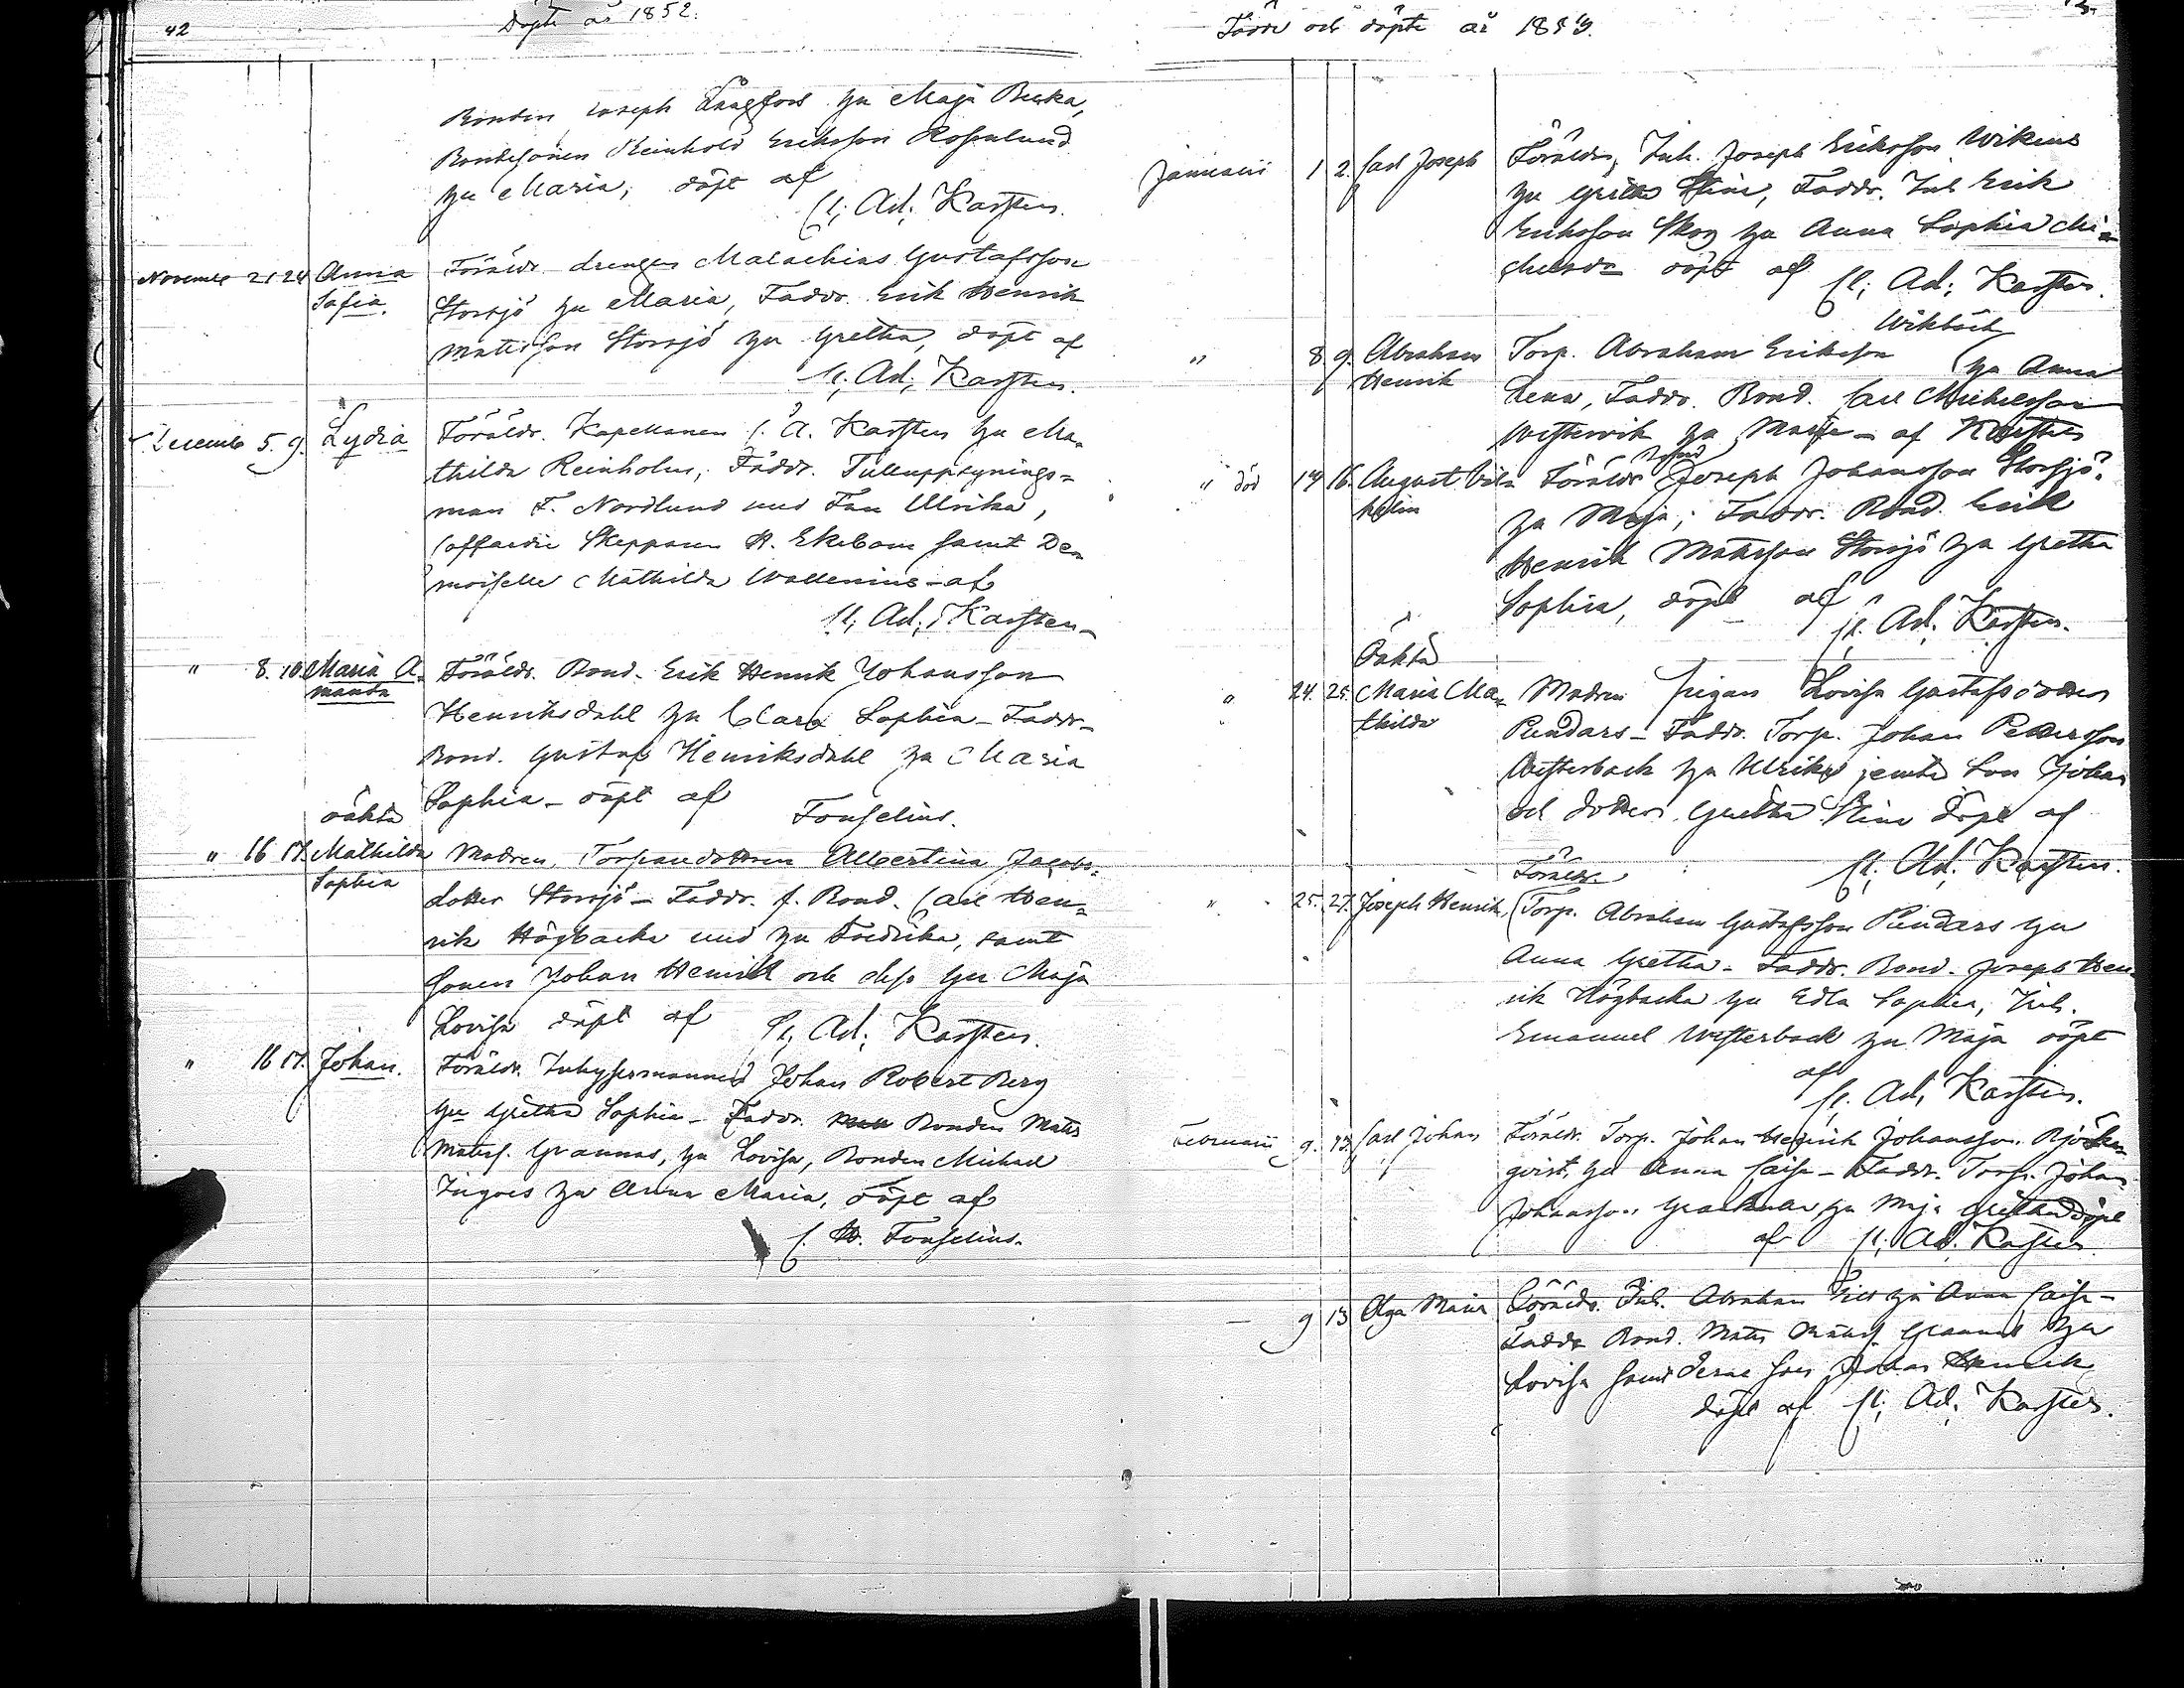 42
Döpte år 1852.
Bonden Joseph Långfors hu Maja Beska,
Bondesonen Reinhold Eriksson Rosenlund
hu Maria, döpt af
C. Ad. Karsten.
November 21 24 Anna Sofia.
Föräldr. drengen Malachias Gustafsson
Storsjö hu Maria, Faddr. Erik Henrik
Mattsson Storsjö hu Gretha, döpt af
C. Ad. Karsten.
December 5. 9. Lydia
Föräldr. Kapellanen C. A. Karsten hu Ma-
thilda Reinholm, Faddr. Tulluppsynings-
man F. Nordlund med Fru Ulrika,
Coffardie Skepparen A. Ekebom samt De-
moiselle Mathilda Wallenius - af
C. Ad. Karsten
" 8. 10. Maria A-
manda
Föräldr. Bond. Erik Henrik Johansson
Henriksdahl hu Clara Sophia - Faddr.
Bond. Gustaf Henriksdahl hu Maria
Sophia - döpt af
Fonselius.
oäkta
" 16 17. Mathilda
Sophia
Modren, Torparedottren Albertina Jacobs-
dotter Storsjö - Faddr. f. Bond. Carl Hen-
rik Högbacka med hu Fredrika, samt
sonen Johan Henrik och dess hu Maja
Lovisa döpt af C. Ad. Karsten.
" 16 17. Johan.
Föräldr. Inhysesmannen Johan Robert Berg
hu Gretha Sophia - Faddr. Bonden Matts
Mattss. Grannas, hu Lovisa, Bonden Michael
Ingves hu Anna Maria, döpt af
C. H. Fonselius.
Födde och döpte år 1853.
Januarii 1 2. Carl Joseph
Föräldr. Inh. Joseph Eriksson Wikens
hu Greta Stina, Faddr. Inh Erik
Eriksson Skog hu Anna Sophia Mi-
chelsdr döpt af C. Ad. Karsten.
" 8 9. Abraham
Henrik
Wikbäck
Torp. Abraham Eriksson hu Anna
Lena, Faddr. Bond. Carl Michelsson
Westervik hu Maria - af Karsten
" död 14 16. August Vil-
helm
Föräldr Bond Joseph Johansson Storsjö
hu Maja; Faddr. Bond. Erik
Henrik Mattsson Storsjö hu Gretha
Sophia, döpt af
C. Ad. Karsten.
Oäkta
" 24. 25. Maria Ma-
thilda
Modren pigan Lovisa Gustafsdotter
Pindars - Faddr. Torp. Johan Pettersson
Westerback hu Ulrika jemte son Johan
och dotter Gretha Stina döpt af
C. Ad. Karsten.
Föräldr.
" 25. 27. Joseph Henrik,
Torp. Abraham Gustafsson Pindars hu
Anna Gretha - Faddr. Bond. Joseph Hen-
rik Högbacka hu Edla Sophia, Inh.
Emanuel Westerback hu Maja döpt
af
C. Ad. Karsten.
Februarii 9. 13. Carl Johan
Föräldr. Torp. Johan Henrik Johansson Björken-
qvist, hu Anna Caisa - Faddr. Torp. Johan
Johansson hu Maja Gretha döpt
af C. Ad. Karsten.
— 9 13 Olga Maria
Föräldr. Inh. Abraham hu Anna Caisa -
Faddr Bond. Matts Mattss. Grannas hu
Lovisa samt deras son Johan Henrik
döpt af C. Ad. Karsten.